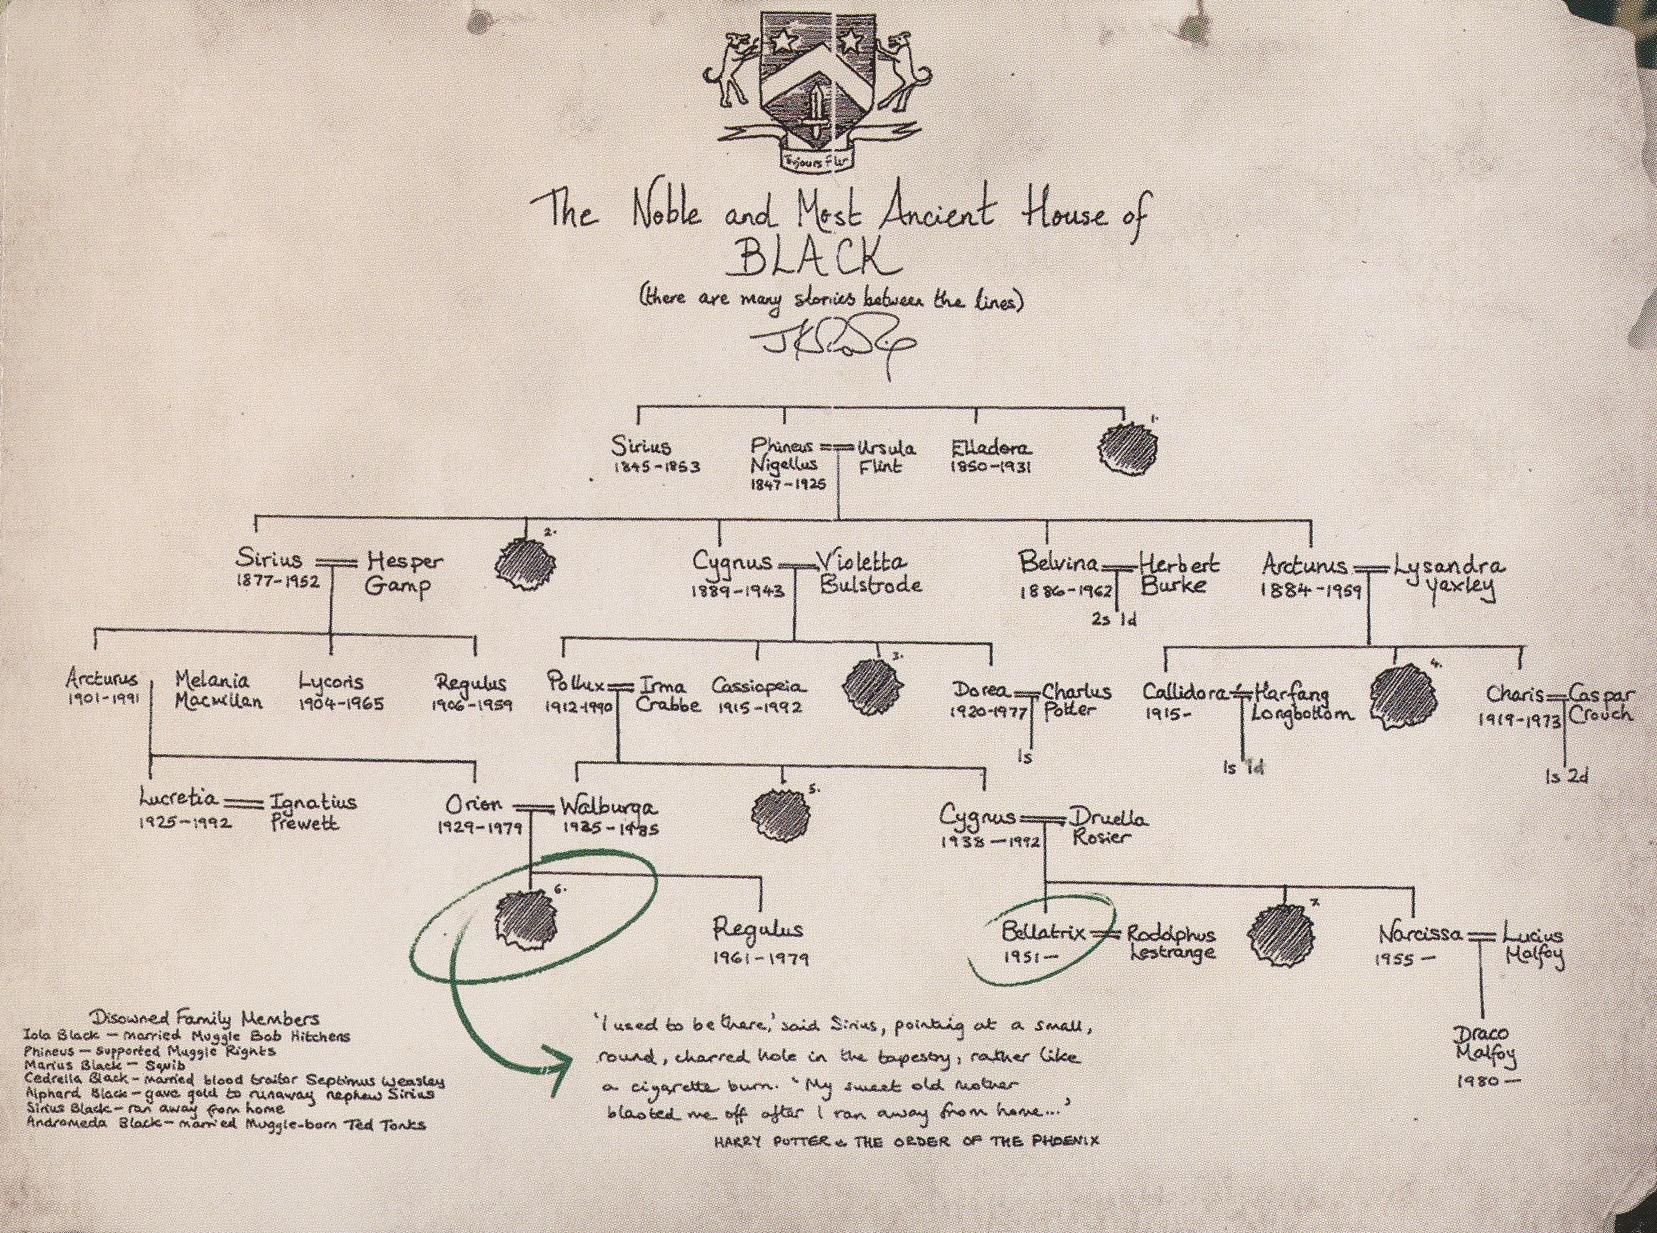 Toujours Pur
The Noble and Most Ancient House of
BLACK
(there are many stories between the lines)
1.
Sirius
1845-1853
Phineus Nigellus
1847-1925
Ursula Flint
Elladora
1850-1931
2.
Sirius
1877-1952
Hesper
Gamp
Cygnus
1889-1943
Violetta
Bulstrode
Belvina
1886-1962
Herbert
Burke
2s 1d
Arcturus
1884-1959
Lysandra
Yaxley
3.
4.
Arcturus
1901-1991
Melania
Macmillan
Lycoris
1904-1965
Regulus
1906-1959
Pollux
1912-1990
Irma
Crabbe
Cassiopeia
1915-1992
Dorea
1920-1977
Charlus
Potter
1s
Callidora
1915-
Harfang
Longbottom
1s 1d
Charis
1919-1973
Caspar
Crouch
1s 2d
5.
Lucretia
1925-1992
Ignatius
Prewett
Orion
1929-1979
Walburga
Cygnus
1938-1992
Druella
Rosier
6.
7
Regulus
1961-1979
Bellatrix
1951-
Rodolphus
Lestrange
Narcissa
1955-
Lucius
Malfoy
Draco
Malfoy
1980-
Disowned Family Members
Iola Black - married Muggle Bob Hitchens
Phineus - supported Muggle Rights
Marius Black - Squib
Cedrella Black - married blood traitor Septimus Weasley
Alphard Black - gave gold to runaway nephew Sirius
Sirius Black - ran away from home
Andromeda Black - married Muggle-born Ted Tonks
'I used to be there,' said Sirius, pointing at a small,
round, charred hole in the tapestry, rather like
a cigarette burn. 'My sweet old mother
blasted me off after I ran away from home...'
HARRY POTTER & THE ORDER OF THE PHOENIX